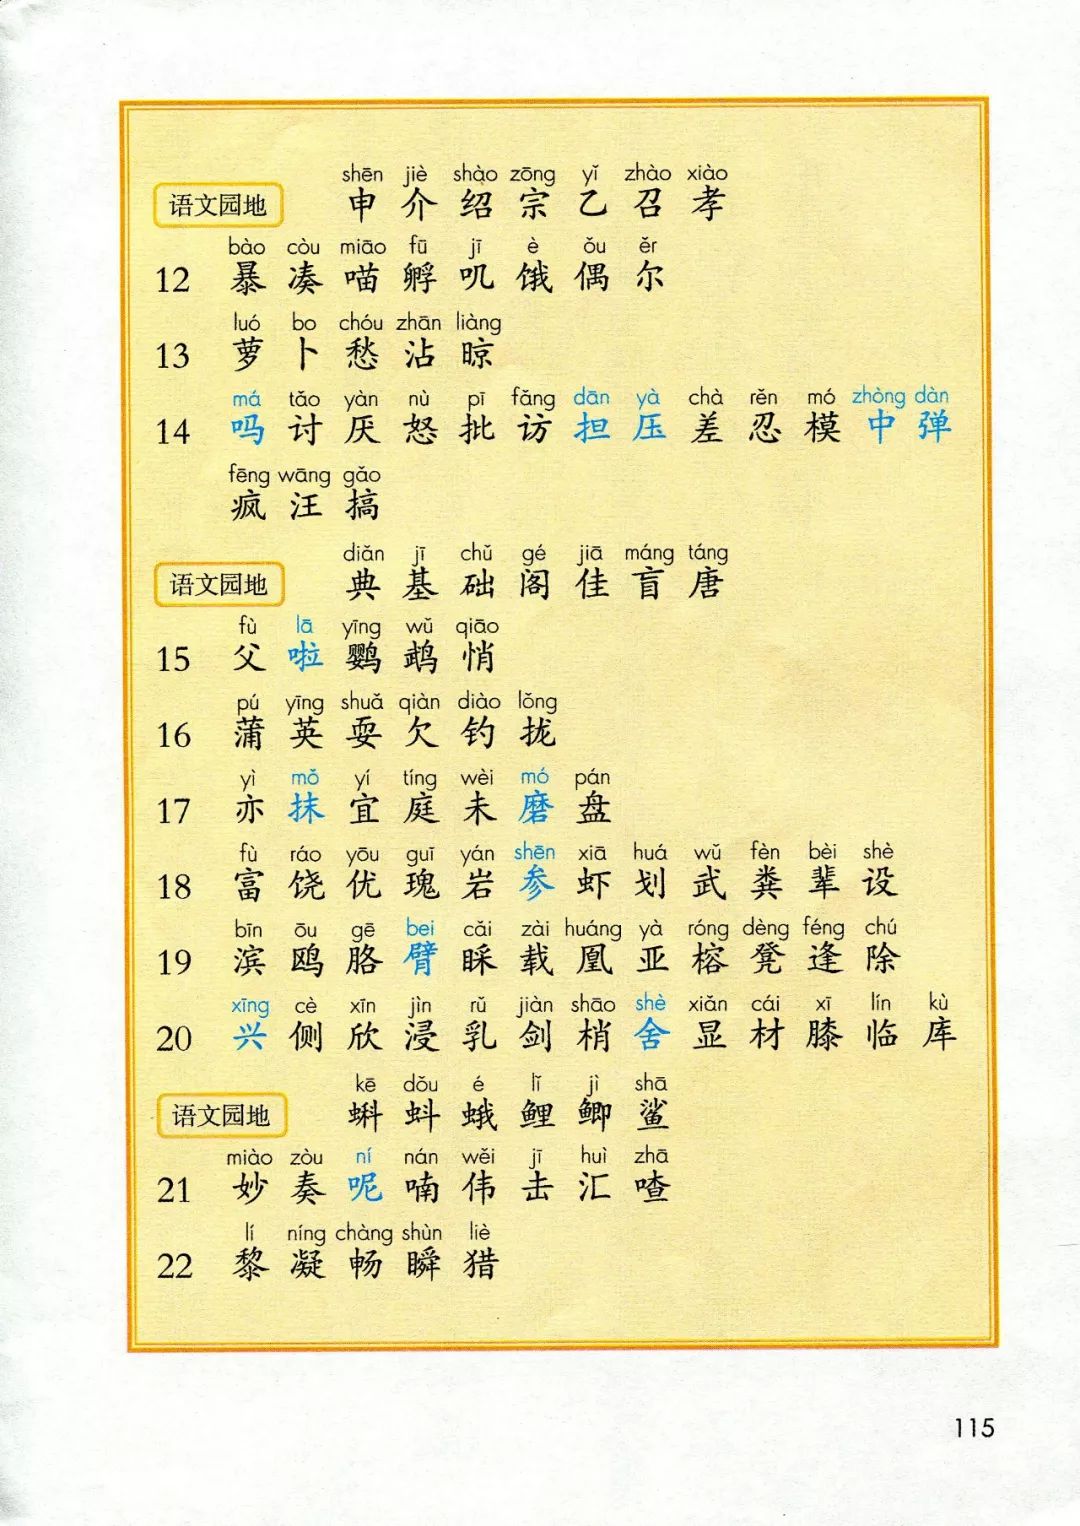 shēn jiè shào zōng yǐ zhào xiào
语文园地 申 介 绍 宗 乙 召 孝
bào còu miāo fū jī è ǒu ěr
12 暴 凑 喵 孵 叽 饿 偶 尔
luó bo chóu zhān liàng
13 萝 卜 愁 沾 晾
má tǎo yàn nù pī fǎng dān yà chà rěn mó zhòng dàn
14 吗 讨 厌 怒 批 访 担 压 差 忍 模 中 弹
fēng wāng gǎo
疯 汪 搞
diǎn jī chǔ gé jiā máng táng
语文园地 典 基 础 阁 佳 盲 唐
fù lā yīng wǔ qiāo
15 父 啦 鹦 鹉 悄
pú yīng shuǎ qiàn diào lǒng
16 蒲 英 耍 欠 钓 拢
yì mǒ yí tíng wèi mó pán
17 亦 抹 宜 庭 未 磨 盘
fù ráo yōu guī yán shēn xiā huá wǔ fèn bèi shè
18 富 饶 优 瑰 岩 参 虾 划 武 粪 辈 设
bīn ōu gē bei cǎi zài huáng yà róng dèng féng chú
19 滨 鸥 胳 臂 睬 载 凰 亚 榕 凳 逢 除
xīng cè xīn jìn rǔ jiàn shāo shè xiǎn cái xī lín kù
20 兴 侧 欣 浸 乳 剑 梢 舍 显 材 膝 临 库
kē dǒu é lǐ jì shā
语文园地 蝌 蚪 蛾 鲤 鲫 鲨
miào zòu ní nán wěi jī huì zhā
21 妙 奏 呢 喃 伟 击 汇 喳
lí níng chàng shùn liè
22 黎 凝 畅 瞬 猎
115